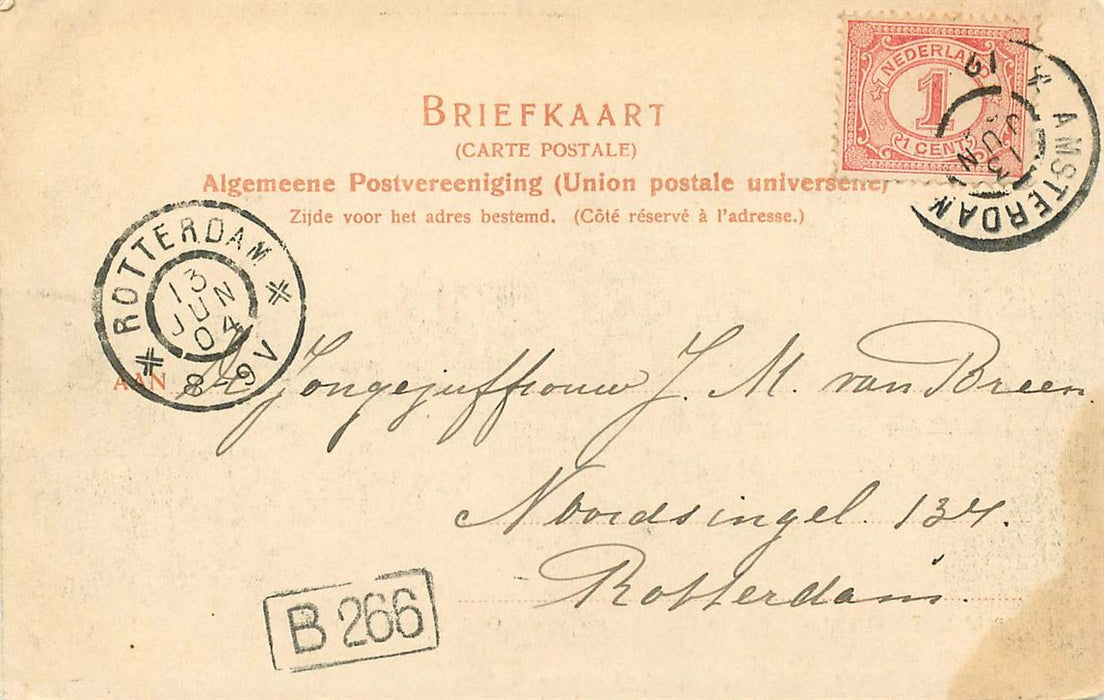 NEDERLAND
1
1 CENT
AMSTERDAM
13
JUN
BRIEFKAART
(CARTE POSTALE)
Algemeene Postvereeniging (Union postale universelle)
Zijde voor het adres bestemd. (Côté réservé à l'adresse.)
ROTTERDAM
13
JUN
04
8-9V
AAN
Jongejuffrouw J. M. van Breen
Noordsingel 134.
Rotterdam.
B 266